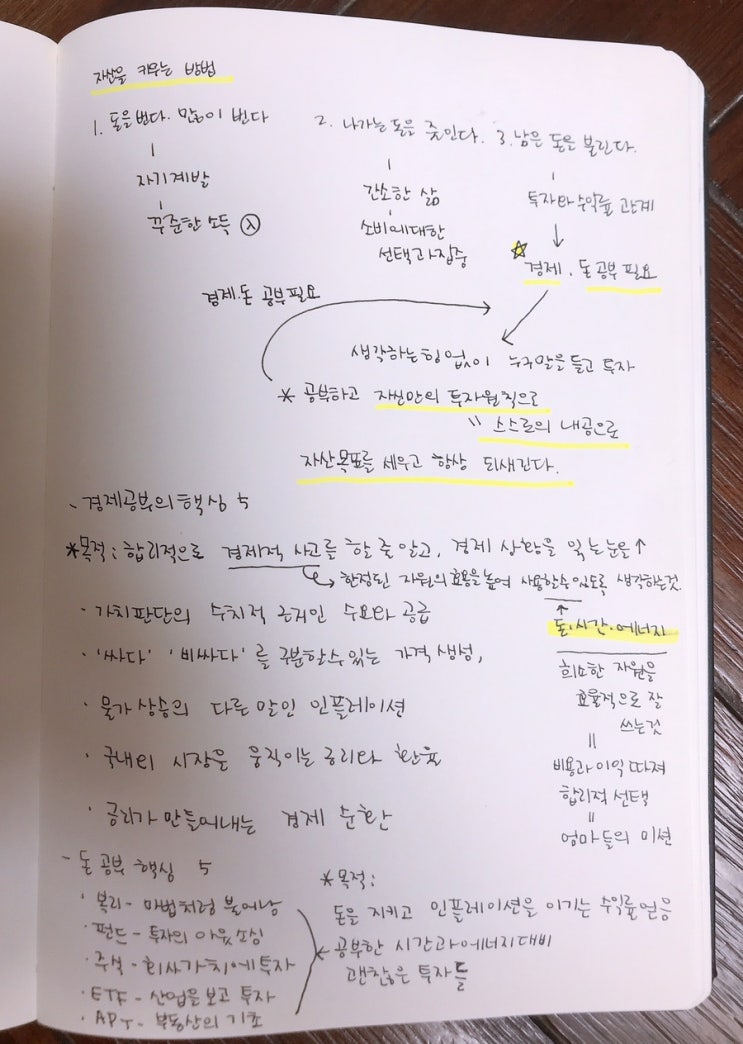 자산을 키우는 방법
1. 돈을 번다. 많이 번다
자기계발
꾸준한 소득
2. 나가는 돈을 줄인다.
간소한 삶
소비에대한
선택과집중
3. 남은 돈을 불린다.
투자와수익률 관계
경제. 돈 공부필요
경제.돈 공부필요
생각하는힘없이 누구말을듣고 투자
* 공부하고 자신만의 투자원칙으로
〃 스스로의 내공으로
자산목표를 세우고 항상 되새긴다.
- 경제공부의핵심 5
*목적: 합리적으로 경제적 사고를 할 줄알고, 경제 상황을 읽는눈을↑
한정된 자원의효용을높여 사용할수있도록 생각하는것.
↑
돈·시간·에너지
희소한 자원을
효율적으로 잘
쓰는것
=
비용과이익따져
합리적선택
=
엄마들의 미션
· 가치판단의 수치적 근거인 수요와 공급
· '싸다' '비싸다'를 구분할수있는 가격생성,
· 물가상승의 다른 말인 인플레이션
· 국내외 시장을 움직이는 금리와 환율
· 금리가만들어내는 경제 순환
- 돈 공부 핵심 5
· 복리 - 마법처럼 불어남
· 펀드 - 투자의 아웃소싱
· 주식 - 회사가치에투자
· ETF - 산업을보고 투자
· APT - 부동산의 기초
*목적:
돈을 지키고 인플레이션을 이기는 수익률얻음
← 공부한 시간과에너지대비
괜찮은 투자들